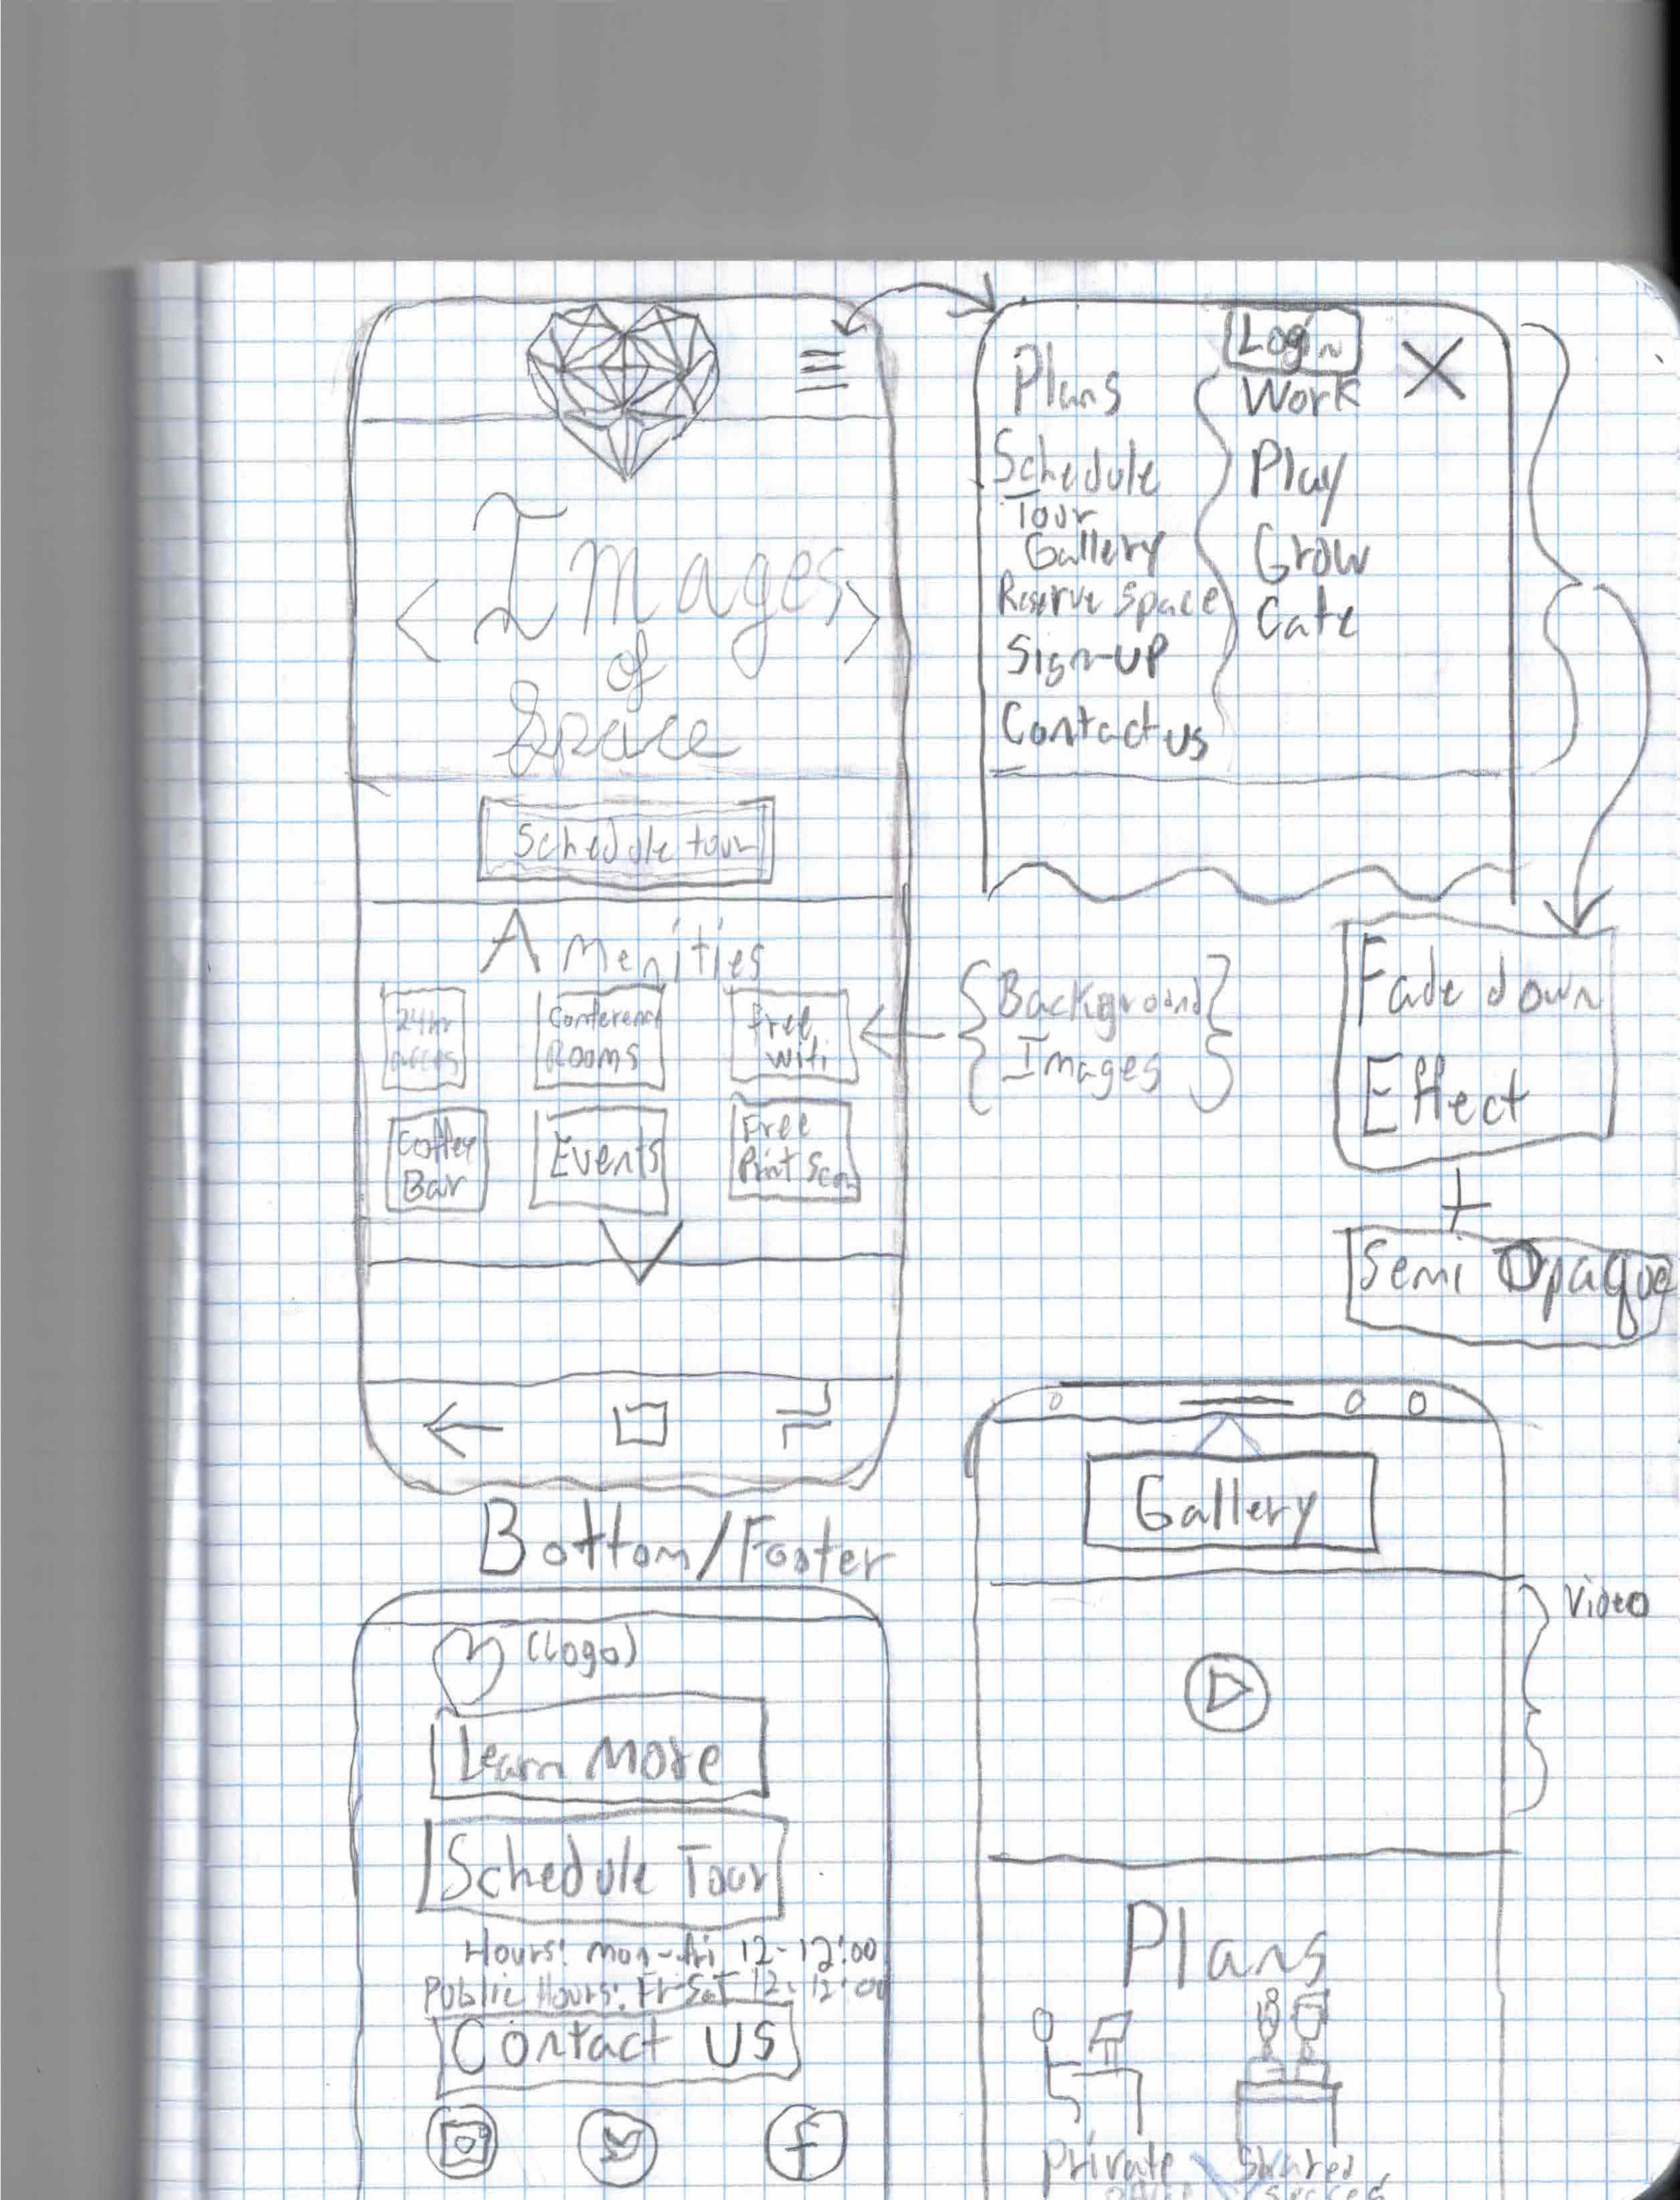 Images
of
Space
Schedule tour
Amenities
24hr
acces
Conference
Rooms
Free
Wifi
Coffee
Bar
Events
Free
Print Scan
Login
Plans
Schedule
Tour
Gallery
Reserve Space
Sign-UP
Contact us
Work
Play
Grow
Cafe
Background
Images
Fade down
Effect
+
Semi Opaque
Bottom/Footer
(Logo)
Learn More
Schedule Tour
Hours: Mon-Fri 12-12:00
Public Hours: Fr-Sat 12-12:00
Contact US
Gallery
Video
Plans
Private
Shared